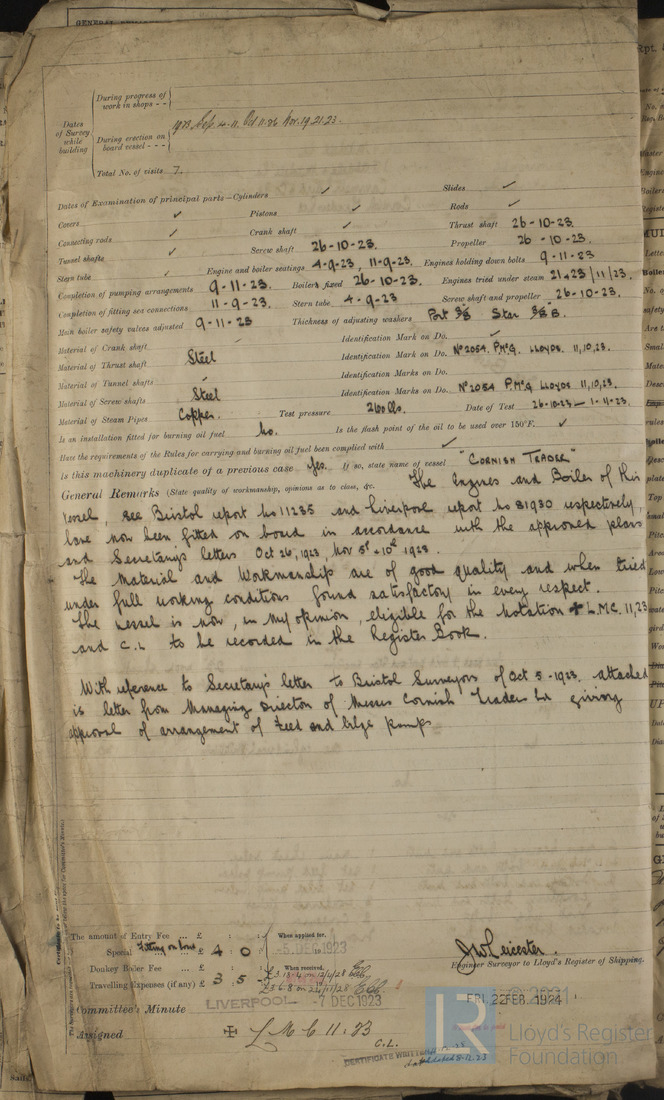 During progress of work in shops - -
Dates of Survey while building
1923 Sep. 4. 11. Oct 11. 26 Nov. 19. 21. 23.
During erection on board vessel - - -
Total No. of visits 7.
Dates of Examination of principal parts—Cylinders ✓ Slides ✓
Covers ✓ Pistons ✓ Rods ✓
Connecting rods ✓ Crank shaft ✓ Thrust shaft 26-10-23.
Tunnel shafts ✓ Screw shaft 26-10-23. Propeller 26-10-23.
Stern tube ✓ Engine and boiler seatings 4-9-23, 11-9-23. Engines holding down bolts 9-11-23
Completion of pumping arrangements 9-11-23. Boilers fixed 26-10-23. Engines tried under steam 21 & 23/11/23.
Completion of fitting sea connections 11-9-23. Stern tube 4-9-23 Screw shaft and propeller 26-10-23.
Main boiler safety valves adjusted 9-11-23 Thickness of adjusting washers Port 3/8 Star 3/8 B.
Material of Crank shaft Identification Mark on Do.
Material of Thrust shaft Steel Identification Mark on Do. No 2054. P.McG. LLOYDS. 11,10,23.
Material of Tunnel shafts Identification Marks on Do.
Material of Screw shafts Steel Identification Marks on Do. No 2054 P.McG LLOYDS 11,10,23.
Material of Steam Pipes Copper. Test pressure 260 lbs. Date of Test 26-10-23 — 1-11-23.
Is an installation fitted for burning oil fuel No. Is the flash point of the oil to be used over 150°F. ✓
Have the requirements of the Rules for carrying and burning oil fuel been complied with ✓
Is this machinery duplicate of a previous case Yes. If so, state name of vessel "CORNISH TRADER"
General Remarks (State quality of workmanship, opinions as to class, &c. The Engines and Boiler of this
vessel, see Bristol report No 11235 and Liverpool report No 81930 respectively,
have now been fitted on board in accordance with the approved plans
and Secretary's letters Oct 26, 1923, Nov 5th & 10th 1923.
The Material and Workmanship are of good quality and when tried
under full working conditions found satisfactory in every respect.
The vessel is now, in my opinion, eligible for the notation ✠ L.M.C. 11,23
and C.L to be recorded in the Register Book.
With reference to Secretary's letter to Bristol Surveyors of Oct 5-1923. attached
is letter from Managing Director of Messrs Cornish Traders Ld giving
approval of arrangement of feed and bilge pumps
The amount of Entry Fee ... £ : : When applied for,
Special Fitting on board £ 4 : 0 -5 DEC 1923
Donkey Boiler Fee ... £ : : When received,
Travelling Expenses (if any) £ 3 : 5
J W Leicester.
Engineer Surveyor to Lloyd's Register of Shipping.
Committee's Minute LIVERPOOL -7 DEC 1923 FRI. 22 FEB. 1924
Assigned ✠ L M C 11.23
C.L.
CERTIFICATE WRITTEN
© 2021
LR Lloyd's Register Foundation